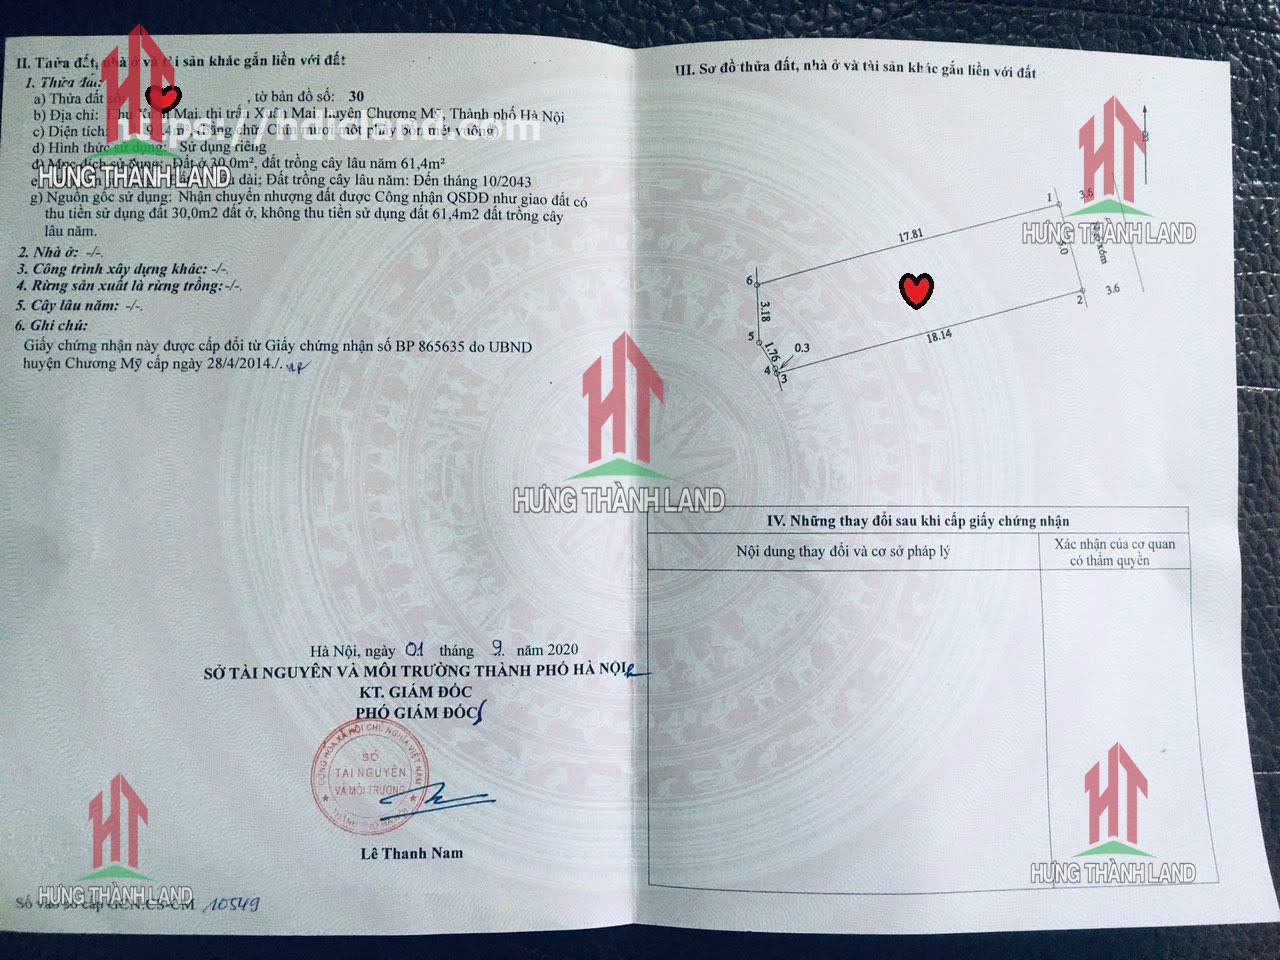 II. Thửa đất, nhà ở và tài sản khác gắn liền với đất
1. Thửa đất:
a) Thửa đất số: , tờ bản đồ số: 30
b) Địa chỉ: Khu Xuân Mai, thị trấn Xuân Mai, huyện Chương Mỹ, Thành phố Hà Nội
c) Diện tích: 91,4m², (bằng chữ: Chín mươi mốt phẩy bốn mét vuông)
d) Hình thức sử dụng: Sử dụng riêng
đ) Mục đích sử dụng: Đất ở 30,0m², đất trồng cây lâu năm 61,4m²
dài; Đất trồng cây lâu năm: Đến tháng 10/2043
g) Nguồn gốc sử dụng: Nhận chuyển nhượng đất được Công nhận QSDĐ như giao đất có
thu tiền sử dụng đất 30,0m2 đất ở, không thu tiền sử dụng đất 61,4m2 đất trồng cây
lâu năm.
2. Nhà ở: -/-.
3. Công trình xây dựng khác: -/-.
4. Rừng sản xuất là rừng trồng: -/-.
5. Cây lâu năm: -/-.
6. Ghi chú:
Giấy chứng nhận này được cấp đổi từ Giấy chứng nhận số BP 865635 do UBND
huyện Chương Mỹ cấp ngày 28/4/2014./.
https://hdicland.com
HƯNG THÀNH LAND
Hà Nội, ngày 01 tháng 9 năm 2020
SỞ TÀI NGUYÊN VÀ MÔI TRƯỜNG THÀNH PHỐ HÀ NỘI
KT. GIÁM ĐỐC
PHÓ GIÁM ĐỐC
CỘNG HÒA XÃ HỘI CHỦ NGHĨA VIỆT NAM
SỞ
TÀI NGUYÊN
VÀ MÔI TRƯỜNG
THÀNH PHỐ HÀ NỘI
Lê Thanh Nam
HƯNG THÀNH LAND
Số vào sổ cấp GCN:CS-CM 10549
III. Sơ đồ thửa đất, nhà ở và tài sản khác gắn liền với đất
B
1
3.6
17.81
5.0
xóm
HƯNG THÀNH LAND
6
3.18
2
3.6
18.14
5
1.76
0.3
4
3
HƯNG THÀNH LAND
IV. Những thay đổi sau khi cấp giấy chứng nhận
Nội dung thay đổi và cơ sở pháp lý
Xác nhận của cơ quan
có thẩm quyền
HƯNG THÀNH LAND